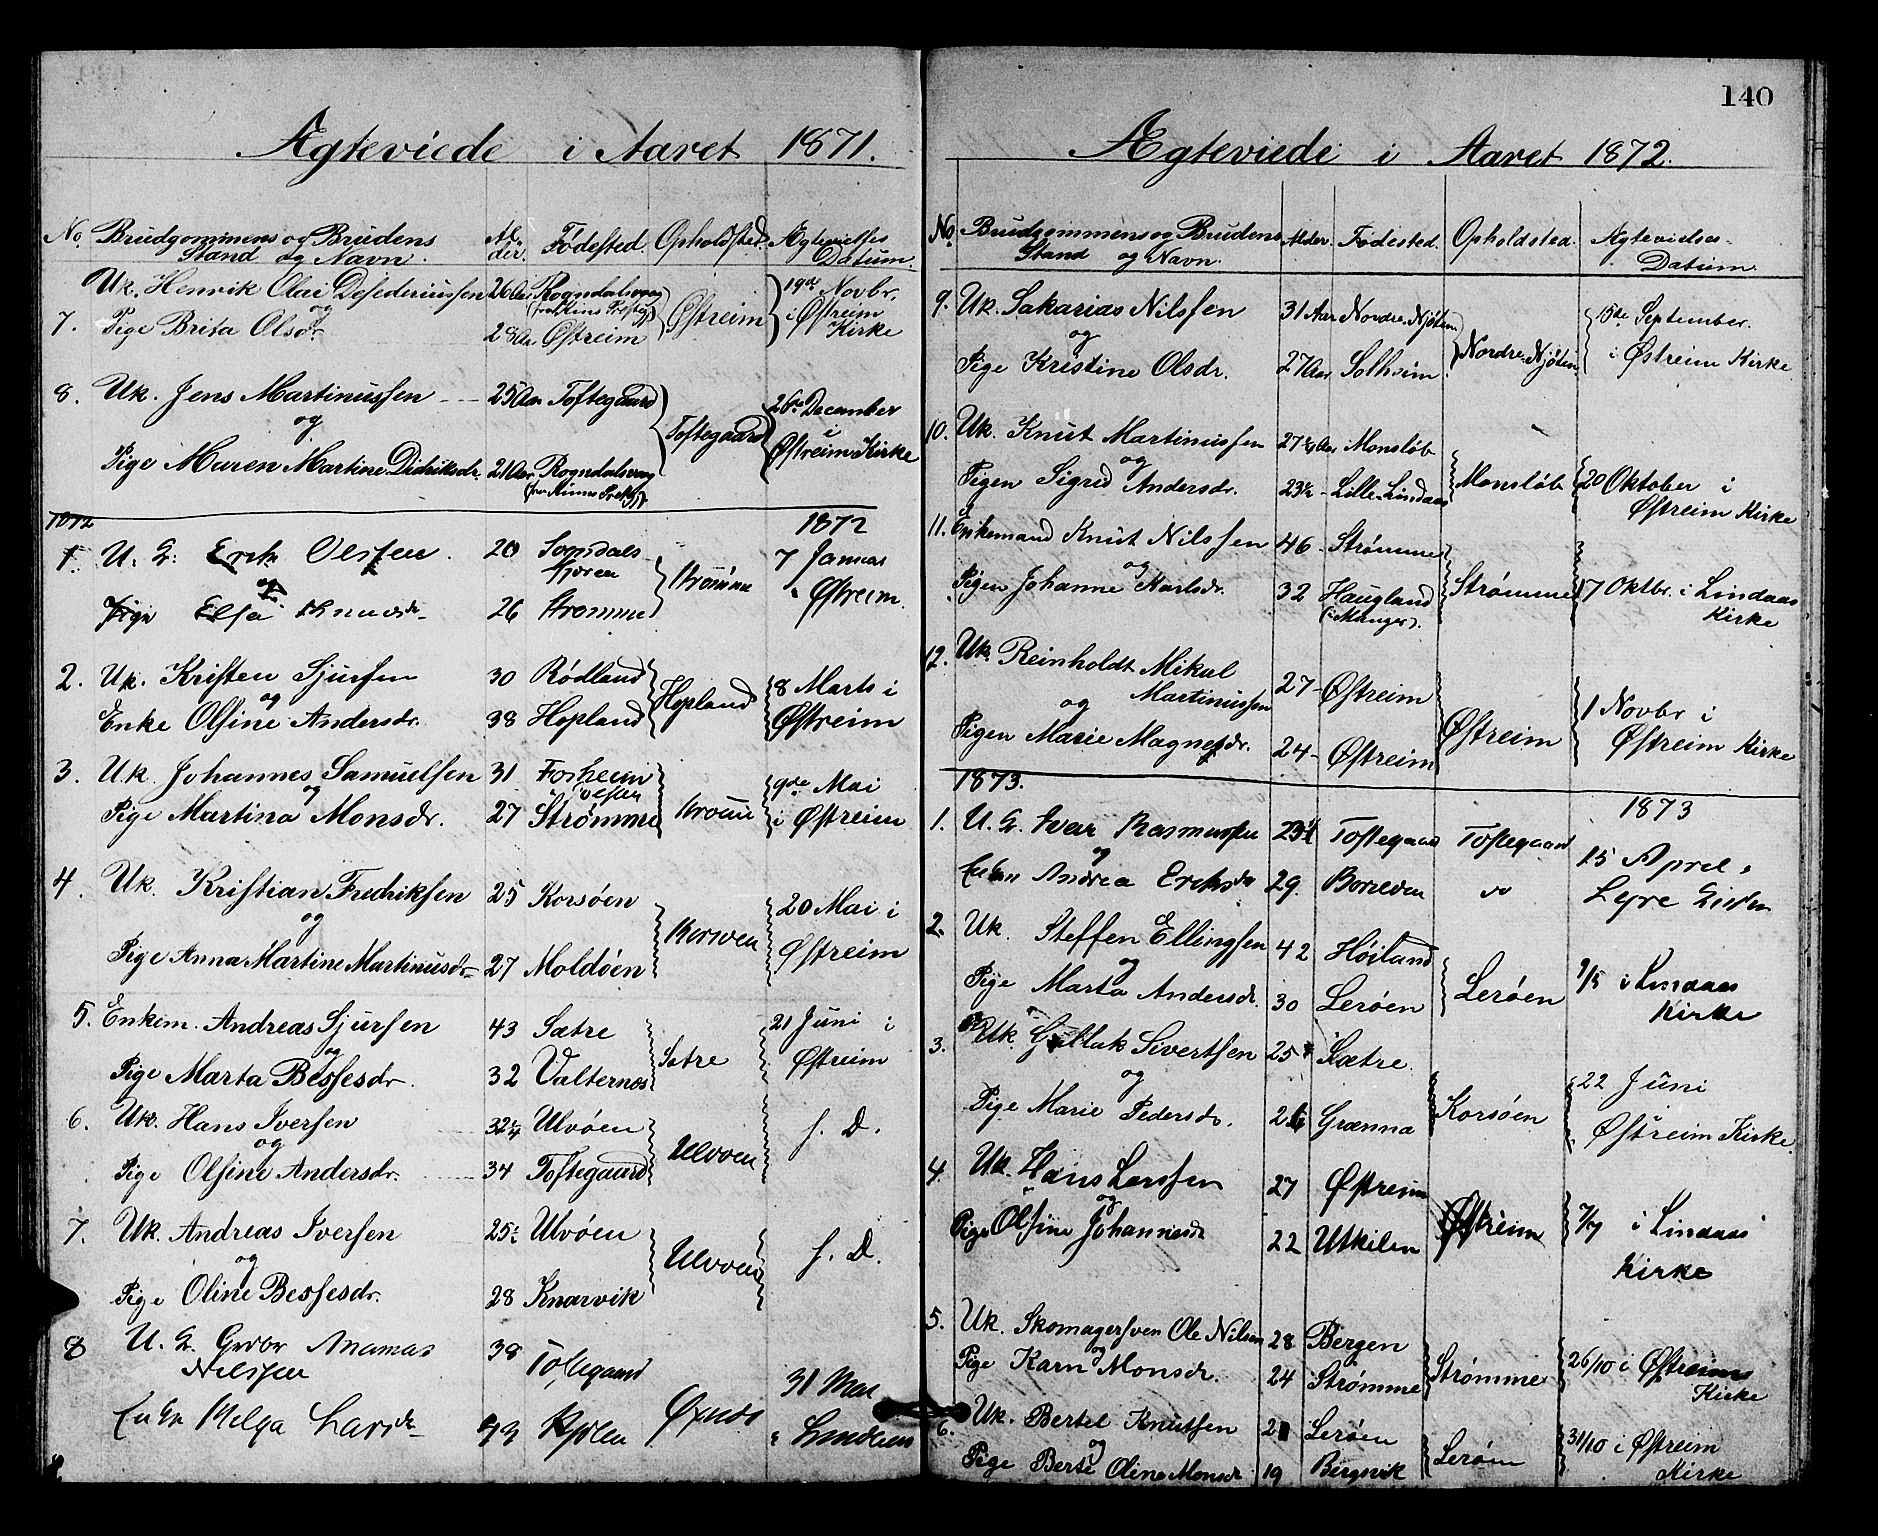 Ægteviede i Aaret 1871.
No. Brudgommens og Brudens Stand og Navn. Alder. Fødested. Opholdsted. Ægtevielses Datum.
Uk. Henrik Olai Desideriussen 26 Aar Rogndalsvaag
og
7. Pige Brita Olsdr. 28 Aar Østreim Østreim 19de Novbr. i Østreim Kirke
8. Uk. Jens Martinussen 25 Aar Toftegaard
og Toftegaard 26de December i Østreim Kirke
Pige Maren Martine Didriksdr. 21 Aar Rogndalsvaag
1872 1872
1. U. G. Erik Olsen. 20
og 7 Januar
Pige Elsa Knudsdr. 26 Strømme i Østreim.
2. Uk. Kristen Sjursen 30 Rødland
og Hopland 8 Marts i
Enke Olsine Andersdr. 38 Hopland Østreim
3. Uk. Johannes Samuelsen 31
og 9de Mai
Pige Martina Monsdr. 27 Strømme i Østreim
4. Uk. Kristian Fredriksen 25 Korsøen
og 20 Mai i
Pige Anna Martine Martinusdr. 27 Moldøen Østreim
5. Enkem. Andreas Sjursen 43 Sætre 21 Juni i
og Sætre
Pige Marta Bessesdr. 32 Valternes Østreim
6. Uk. Hans Iversen 32 1/4 Ulvøen
og Ulvøen f. D.
Pige Olsine Andersdr. 34 Toftegaard
7. Uk. Andreas Iversen 25 Ulvøen
og Ulvøen f. D.
Pige Oline Bessesdr. 28 Knarvik
8 U. G. Ananias 38 Toftegaard
Nilssen
Enke Helga Larsdr. 43 31 Mai
140
Ægteviede i Aaret 1872.
No. Brudgommens og Brudens Stand og Navn. Alder. Fødested. Opholdsted. Ægtevielses-Datum.
9. Uk. Sakarias Nilssen 31 Aar Nordre Njøten 15de September.
og Nordre Njøten
Pige Kristine Olsdr. 27 Aar Solheim i Østreim Kirke
10. Uk. Knut Martinussen 27 1/4 Aar Monsløb
og Monsløb 20 Oktober i
Pigen Sigrid Andersdr. 23 1/2 Lille Lindaas Østreim Kirke
11. Enkemand Knut Nilssen 46 Strømme
og Strømme 17 Oktbr. i Lindaas
Pigen Johanne Karlsdr. 32 Haugland (i Manger). Kirke
12. Uk. Reinholdt Mikal
Martinussen 27 Østreim
og Østreim 1 Novbr i
Pigen Marie Magnesdr. 24 Østreim Østreim Kirke
1873. 1873
1. U. G. Ivar Rasmussen Toftegaard Toftegaard 15 April i
og
Enken Andrea Eriksdr 29.
2. Uk. Steffen Ellingsen 42 Høiland
og Lerøen 9/5 i Lindaas
Pige Marta Andersdr. 30 Lerøen Kirke
3. Uk. Gullak Sivertsen 25 Sætre
og Korsøen 22 Juni
Pige Marie Pedersdr. 26 Grænna Østreim Kirke
4. Uk. Hans Larssen 27 Østreim
og Østreim 7/7 i Lindaas
Pige Olsine Johannesdr 22 Utkilen Kirke
5. Uk. Skomagersven Ole Nilsen 28 Bergen
og Strømme 26/10 i Østreim
Pige Karn Monsdr. 24 Strømme Kirke
6. Uk. Bertel Knutsen Lerøen
og Lerøen 31/10 i Østreim
Pige Berte Oline Monsdr 19 Bergsvik Kirke